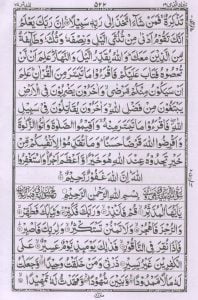 ۵۲۲
تَذْكِرَةٌ ۚ فَمَنْ شَآءَ اتَّخَذَ اِلٰى رَبِّهٖ سَبِيْلًا ۝ اِنَّ رَبَّكَ يَعْلَمُ
اَنَّكَ تَقُوْمُ اَدْنٰى مِنْ ثُلُثَيِ الَّيْلِ وَنِصْفَهٗ وَثُلُثَهٗ وَطَآئِفَةٌ
مِّنَ الَّذِيْنَ مَعَكَ ؕ وَاللّٰهُ يُقَدِّرُ الَّيْلَ وَالنَّهَارَ ؕ عَلِمَ اَنْ لَّنْ
تُحْصُوْهُ فَتَابَ عَلَيْكُمْ فَاقْرَءُوْا مَا تَيَسَّرَ مِنَ الْقُرْاٰنِ ؕ عَلِمَ اَنْ
سَيَكُوْنُ مِنْكُمْ مَّرْضٰى ۙ وَاٰخَرُوْنَ يَضْرِبُوْنَ فِي الْاَرْضِ
يَبْتَغُوْنَ مِنْ فَضْلِ اللّٰهِ ۙ وَاٰخَرُوْنَ يُقَاتِلُوْنَ فِيْ سَبِيْلِ
اللّٰهِ ۖ فَاقْرَءُوْا مَا تَيَسَّرَ مِنْهُ ۙ وَاَقِيْمُوا الصَّلٰوةَ وَاٰتُوا الزَّكٰوةَ
وَاَقْرِضُوا اللّٰهَ قَرْضًا حَسَنًا ؕ وَمَا تُقَدِّمُوْا لِاَنْفُسِكُمْ مِّنْ
خَيْرٍ تَجِدُوْهُ عِنْدَ اللّٰهِ هُوَ خَيْرًا وَّاَعْظَمَ اَجْرًا ؕ وَاسْتَغْفِرُوا
اللّٰهَ ؕ اِنَّ اللّٰهَ غَفُوْرٌ رَّحِيْمٌ ۝
بِسْمِ اللّٰهِ الرَّحْمٰنِ الرَّحِيْمِ
يٰۤاَيُّهَا الْمُدَّثِّرُ ۝ قُمْ فَاَنْذِرْ ۝ وَرَبَّكَ فَكَبِّرْ ۝ وَثِيَابَكَ فَطَهِّرْ ۝
وَالرُّجْزَ فَاهْجُرْ ۝ وَلَا تَمْنُنْ تَسْتَكْثِرُ ۝ وَلِرَبِّكَ فَاصْبِرْ ۝
فَاِذَا نُقِرَ فِي النَّاقُوْرِ ۝ فَذٰلِكَ يَوْمَئِذٍ يَّوْمٌ عَسِيْرٌ ۝ عَلَى
الْكٰفِرِيْنَ غَيْرُ يَسِيْرٍ ۝ ذَرْنِيْ وَمَنْ خَلَقْتُ وَحِيْدًا ۝ وَّجَعَلْتُ
لَهٗ مَالًا مَّمْدُوْدًا ۝ وَّبَنِيْنَ شُهُوْدًا ۝ وَّمَهَّدْتُّ لَهٗ تَمْهِيْدًا ۝